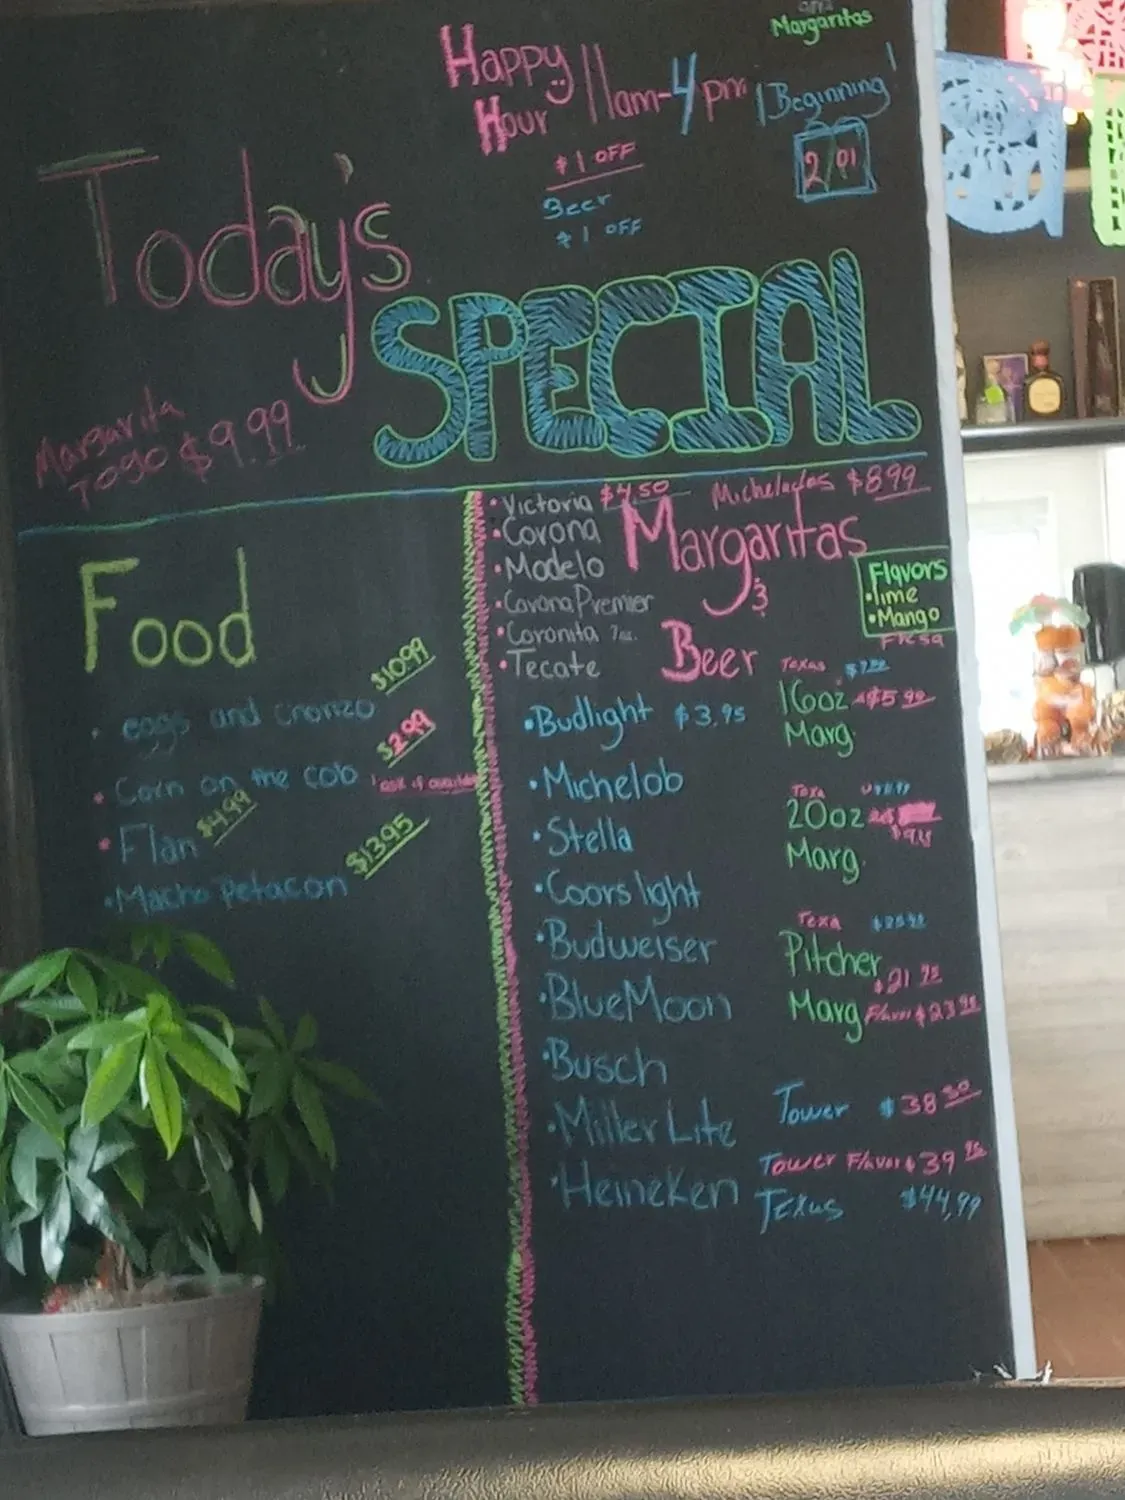 Margaritas
Happy Hour 11am-4pm
Beginning
2/01
$1 OFF
Beer
$1 OFF
Today's
SPECIAL
Margarita
Togo $9.99
Food
$10.99
• eggs and chorizo
$2.99
• Corn on the cob
• Flan $4.99
$13.95
• Macho Petacon
• Victoria $4.50
• Corona
• Modelo
• Corona Premier
• Coronita 7oz.
• Tecate
Micheladas $8.99
Margaritas
&
Beer
Flavors
• lime
• Mango
• Budlight $3.95
• Michelob
• Stella
• Coors light
• Budweiser
• BlueMoon
• Busch
• Miller Lite
• Heineken
Texas
16oz $5.99
Marg.
Texa
20oz
Marg.
Texa
Pitcher $21.95
Marg Flavor $23.95
Tower $38.50
Tower Flavor $39.95
Texas $44.99